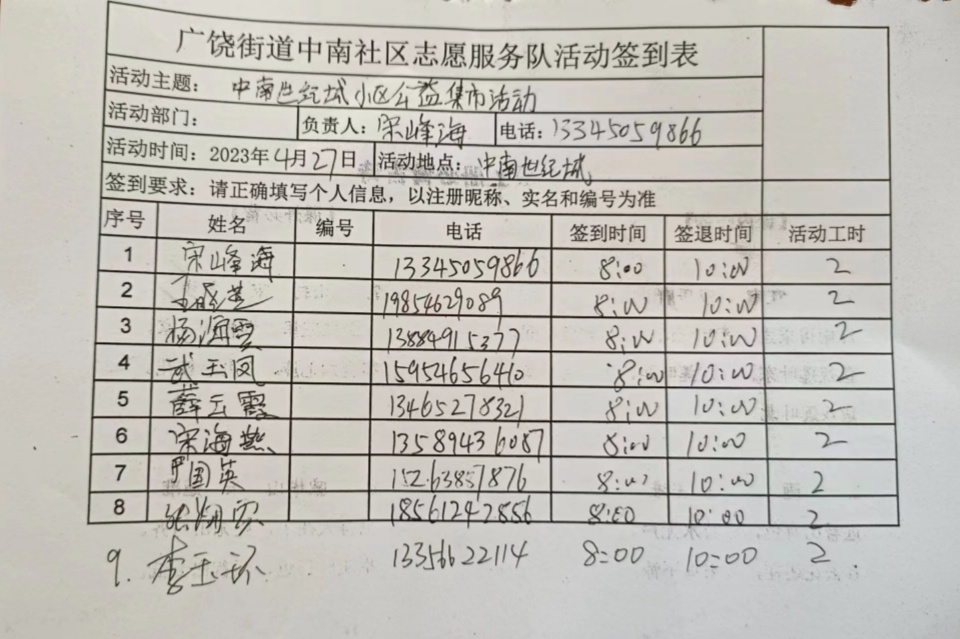 广饶街道中南社区志愿服务队活动签到表
活动主题: 中南世纪城小区公益集市活动
活动部门: 负责人: 宋峰海 电话: 13345059866
活动时间: 2023年4月27日 活动地点: 中南世纪城
签到要求: 请正确填写个人信息，以注册昵称、实名和编号为准
序号 姓名 编号 电话 签到时间 签退时间 活动工时
1 宋峰海 13345059866 8:00 10:00 2
2 19854629089 8:00 10:00 2
3 杨海霞 13884915377 8:00 10:00 2
4 武玉凤 15954656410 8:00 10:00 2
5 薛云霞 13465278321 8:00 10:00 2
6 宋海燕 13589436087 8:00 10:00 2
7 国英 15263857876 8:00 10:00 2
8 18561242856 8:00 10:00 2
9. 李玉环 13356622114 8:00 10:00 2